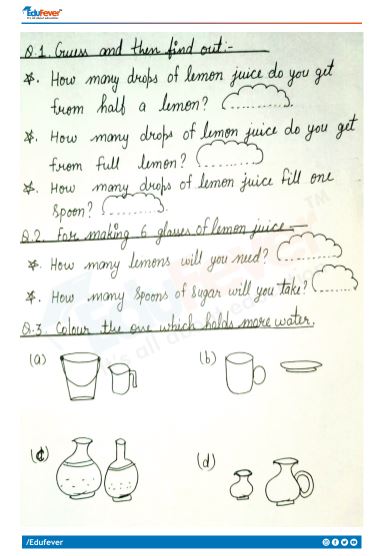 EduFever
It's all about education
Q.1. Guess and then find out:-
☆. How many drops of lemon juice do you get
from half a lemon? (...........).
☆. How many drops of lemon juice do you get
from full lemon? (...........)
☆. How many drops of lemon juice fill one
spoon? (...........).
Q.2. For making 6 glasses of lemon juice.
☆. How many lemons will you need? (...........)
☆. How many spoons of sugar will you take? (.........)
Q.3. Colour the one which holds more water.
(a)
(b)
(c)
(d)
EduFever TM
It's all about education
/Edufever